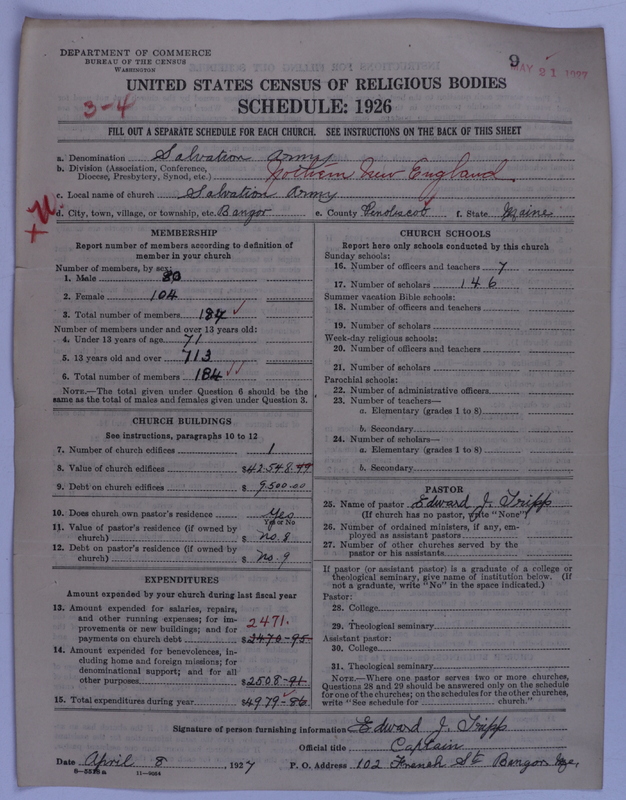 DEPARTMENT OF COMMERCE
BUREAU OF THE CENSUS
WASHINGTON
9
MAY 21 1927
UNITED STATES CENSUS OF RELIGIOUS BODIES
3-4
SCHEDULE: 1926
FILL OUT A SEPARATE SCHEDULE FOR EACH CHURCH. SEE INSTRUCTIONS ON THE BACK OF THIS SHEET
a. Denomination Salvation Army
b. Division (Association, Conference, Diocese, Presbytery, Synod, etc.) Northern New England
c. Local name of church Salvation Army
d. City, town, village, or township, etc. Bangor e. County Penobscot f. State Maine
MEMBERSHIP
Report number of members according to definition of
member in your church
Number of members, by sex:
1. Male 80
2. Female 104
3. Total number of members 184
Number of members under and over 13 years old:
4. Under 13 years of age 71
5. 13 years old and over 113
6. Total number of members 184
NOTE.—The total given under Question 6 should be the
same as the total of males and females given under Question 3.
CHURCH BUILDINGS
See instructions, paragraphs 10 to 12
7. Number of church edifices 1
8. Value of church edifices $42548.49
9. Debt on church edifices $ 9500.00
10. Does church own pastor's residence? Yes
Yes or No
11. Value of pastor's residence (if owned by
church) $ No. 8
12. Debt on pastor's residence (if owned by
church) $ No. 9
EXPENDITURES
Amount expended by your church during last fiscal year
13. Amount expended for salaries, repairs,
and other running expenses; for im-
provements or new buildings; and for 2471.
payments on church debt $2470-95
14. Amount expended for benevolences, in-
cluding home and foreign missions; for
denominational support; and for all
other purposes $2508-91
15. Total expenditures during year $4979-86
CHURCH SCHOOLS
Report here only schools conducted by this church
Sunday schools:
16. Number of officers and teachers 7
17. Number of scholars 146
Summer vacation Bible schools:
18. Number of officers and teachers
19. Number of scholars
Week-day religious schools:
20. Number of officers and teachers
21. Number of scholars
Parochial schools:
22. Number of administrative officers
23. Number of teachers—
a. Elementary (grades 1 to 8)
b. Secondary
24. Number of scholars—
a. Elementary (grades 1 to 8)
b. Secondary
PASTOR
25. Name of pastor Edward J. Tripp
(If church has no pastor, write "None")
26. Number of ordained ministers, if any, em-
ployed as assistant pastors
27. Number of other churches served by the
pastor or his assistants
If pastor (or assistant pastor) is a graduate of a college or
theological seminary, give name of institution below. (If
not a graduate, write "No" in the space indicated.)
Pastor:
28. College
29. Theological seminary
Assistant pastor:
30. College
31. Theological seminary
NOTE.—Where one pastor serves two or more churches,
Questions 28 and 29 should be answered only on the schedule
for one of the churches; on the schedules for the other churches,
write "See schedule for church."
Signature of person furnishing information Edward J. Tripp
Official title Captain
Date April 8, 1927 P. O. Address 102 French St Bangor Me.
8-5518a 11-9054